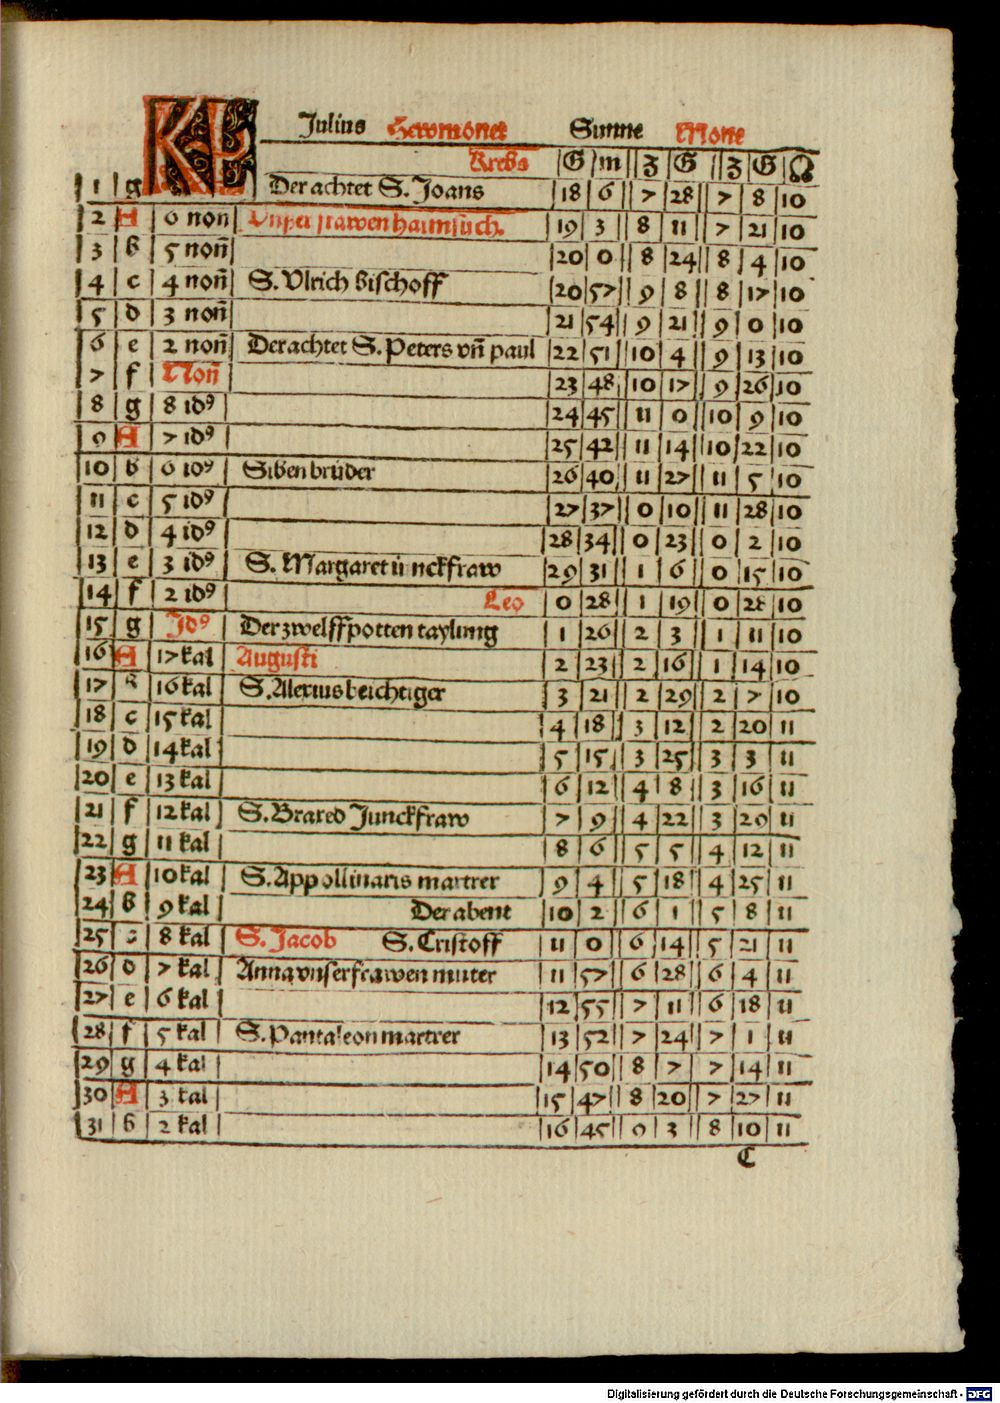 KL Julius Hewmonet Sunne Mone
Krebs G m Z G Z G ☊
1 g Der achtet S. Joans 18 6 7 28 7 8 10
2 A 6 non Unser frawen haimsuch. 19 3 8 11 7 21 10
3 b 5 non̄ 20 0 8 24 8 4 10
4 c 4 non̄ S. Vlrich bischoff 20 57 9 8 8 17 10
5 d 3 non̄ 21 54 9 21 9 0 10
6 e 2 non̄ Der achtet S. Peters vn̄ paul 22 51 10 4 9 13 10
7 f Non̄ 23 48 10 17 9 26 10
8 g 8 idꝰ 24 45 11 0 10 9 10
9 A 7 idꝰ 25 42 11 14 10 22 10
10 b 6 idꝰ Siben brüder 26 40 11 27 11 5 10
11 c 5 idꝰ 27 37 0 10 11 28 10
12 d 4 idꝰ 28 34 0 23 0 2 10
13 e 3 idꝰ S. Margaret iunckfraw 29 31 1 6 0 15 10
14 f 2 idꝰ Leo 0 28 1 19 0 28 10
15 g Jdꝰ Der zwelffpotten taylung 1 26 2 3 1 11 10
16 A 17 kal Augusti 2 23 2 16 1 14 10
17 16 kal S. Alexius beichtiger 3 21 2 29 2 7 10
18 c 15 kal 4 18 3 12 2 20 11
19 d 14 kal 5 15 3 25 3 3 11
20 e 13 kal 6 12 4 8 3 16 11
21 f 12 kal S. Braxed Junckfraw 7 9 4 22 3 29 11
22 g 11 kal 8 6 5 5 4 12 11
23 A 10 kal S. Appollinaris martrer 9 4 5 18 4 25 11
24 b 9 kal Der abent 10 2 6 1 5 8 11
25 c 8 kal S. Jacob S. Cristoff 11 0 6 14 5 21 11
26 d 7 kal Anna vnser frawen muter 11 57 6 28 6 4 11
27 e 6 kal 12 55 7 11 6 18 11
28 f 5 kal S. Pantaleon martrer 13 52 7 24 7 1 11
29 g 4 kal 14 50 8 7 7 14 11
30 A 3 kal 15 47 8 20 7 27 11
31 b 2 kal 16 45 9 3 8 10 11
C
Digitalisierung gefördert durch die Deutsche Forschungsgemeinschaft - DFG